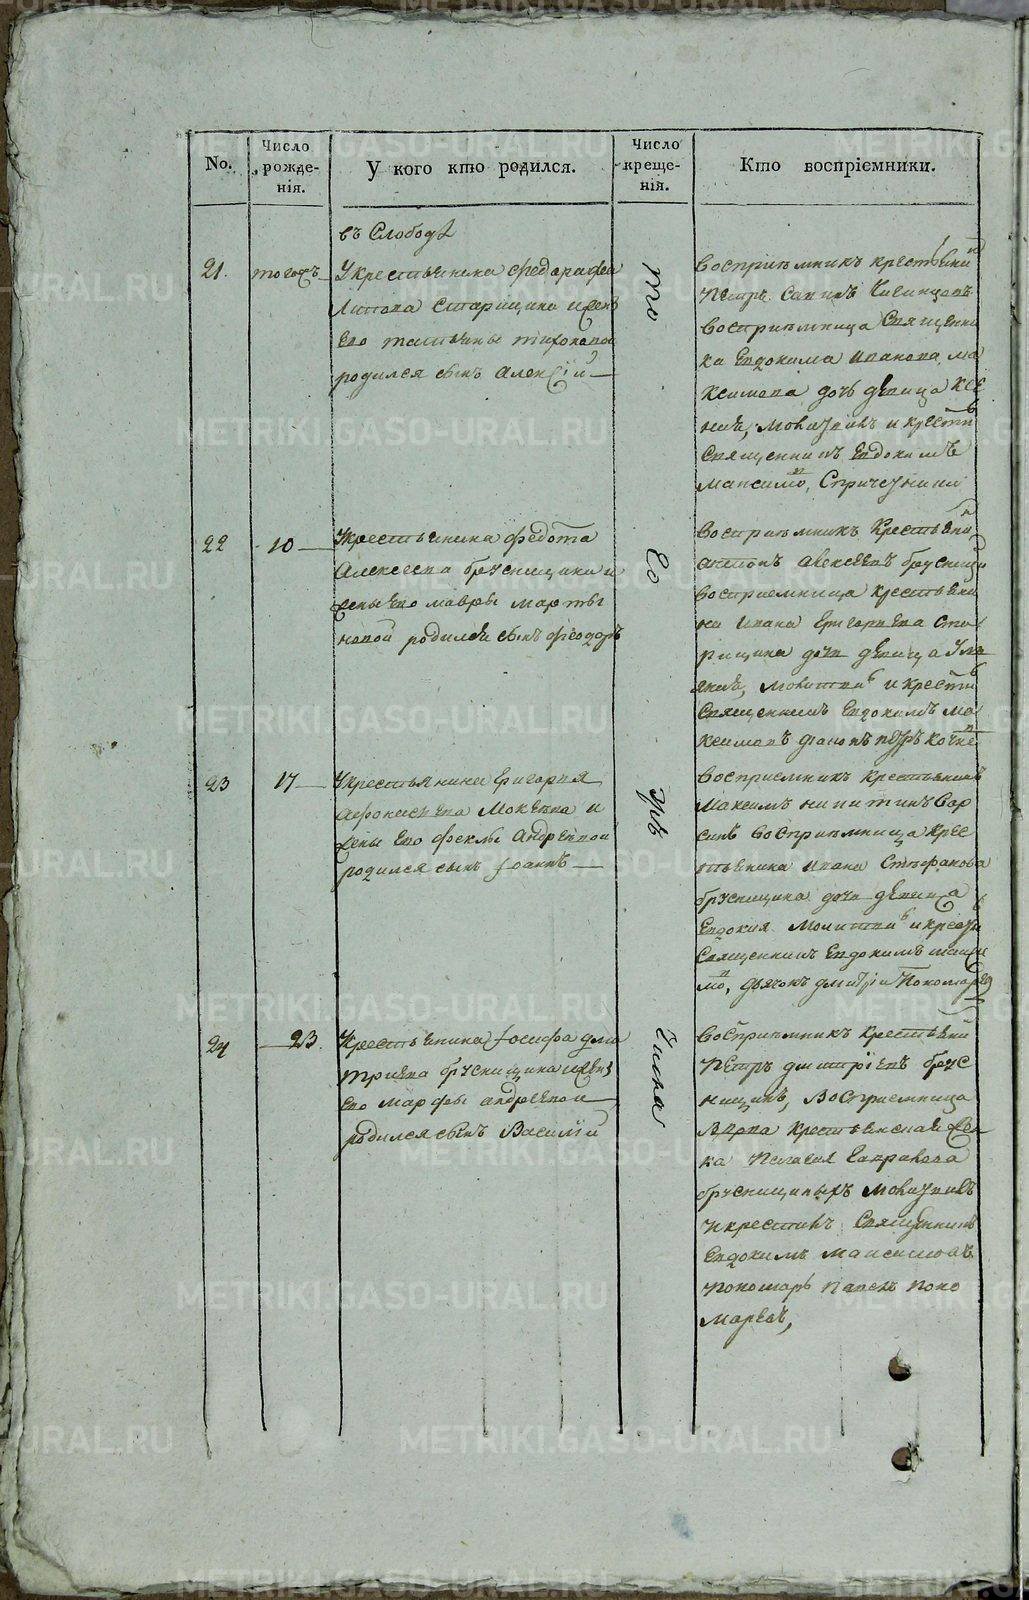 No.
Число рожде-нія.
У кого кто родился.
Число креще-нія.
Кто воспріемники.
въ Слободѣ
21.
тогожъ
У крестьянина Федора фи
липова Старицина и жены
Его татьяны тихоновой
родился сынъ Алексій
то
Воспріемникъ крестьянин
Петръ Савинъ
восприемница Священни
ка Евдокима Иванова ма
ксимова дочь дѣвица Ксе
нія, молитвилъ и крести
Священникъ Евдокимъ
Максимо,
22
10
У крестьянина Федота
Алексеева брусницина и
жены Его Мавры Марты
новой родился сынъ Феодоръ
Его
Восприемникъ Крестьяни
антонъ алексеевъ брусници
восприемница крестьяни
на Ивана Григорьева Ста
рицина дочь дѣвица Уль
яния, молитвилъ и крести
Священникъ Евдокимъ Ма
ксимовъ
23
17
У крестьянина Григорья
Афонасьева Мокѣева и
жены Его Феклы Андреевой
родился сынъ Іоаннъ
Жрѣ
Восприемникъ крестьянинъ
Максимъ никитинъ Вор
синъ восприемница крес
тьянина Ивана Стефанова
брусницина дочь дѣвица
Евдокия молитвилъ и крести
Священникъ Евдокимъ макси
мо, дьячокъ дмитрій Пономарев
24
23
У крестьянина Іосифа дми
триева брусницина и жены
Его Марфы андреевой
родился сынъ Василій
Числа
Восприемникъ крестьяни
Петръ дмитріевъ брус
ницинъ, восприемница
вдова крестьянская жен
ка Пелагея Гаврилова
брусницыныхъ молитвилъ
и крестилъ Священникъ
Евдокимъ Максимовъ
пономарь Павелъ Поно
маревъ,
METRIKI.GASO-URAL.RU